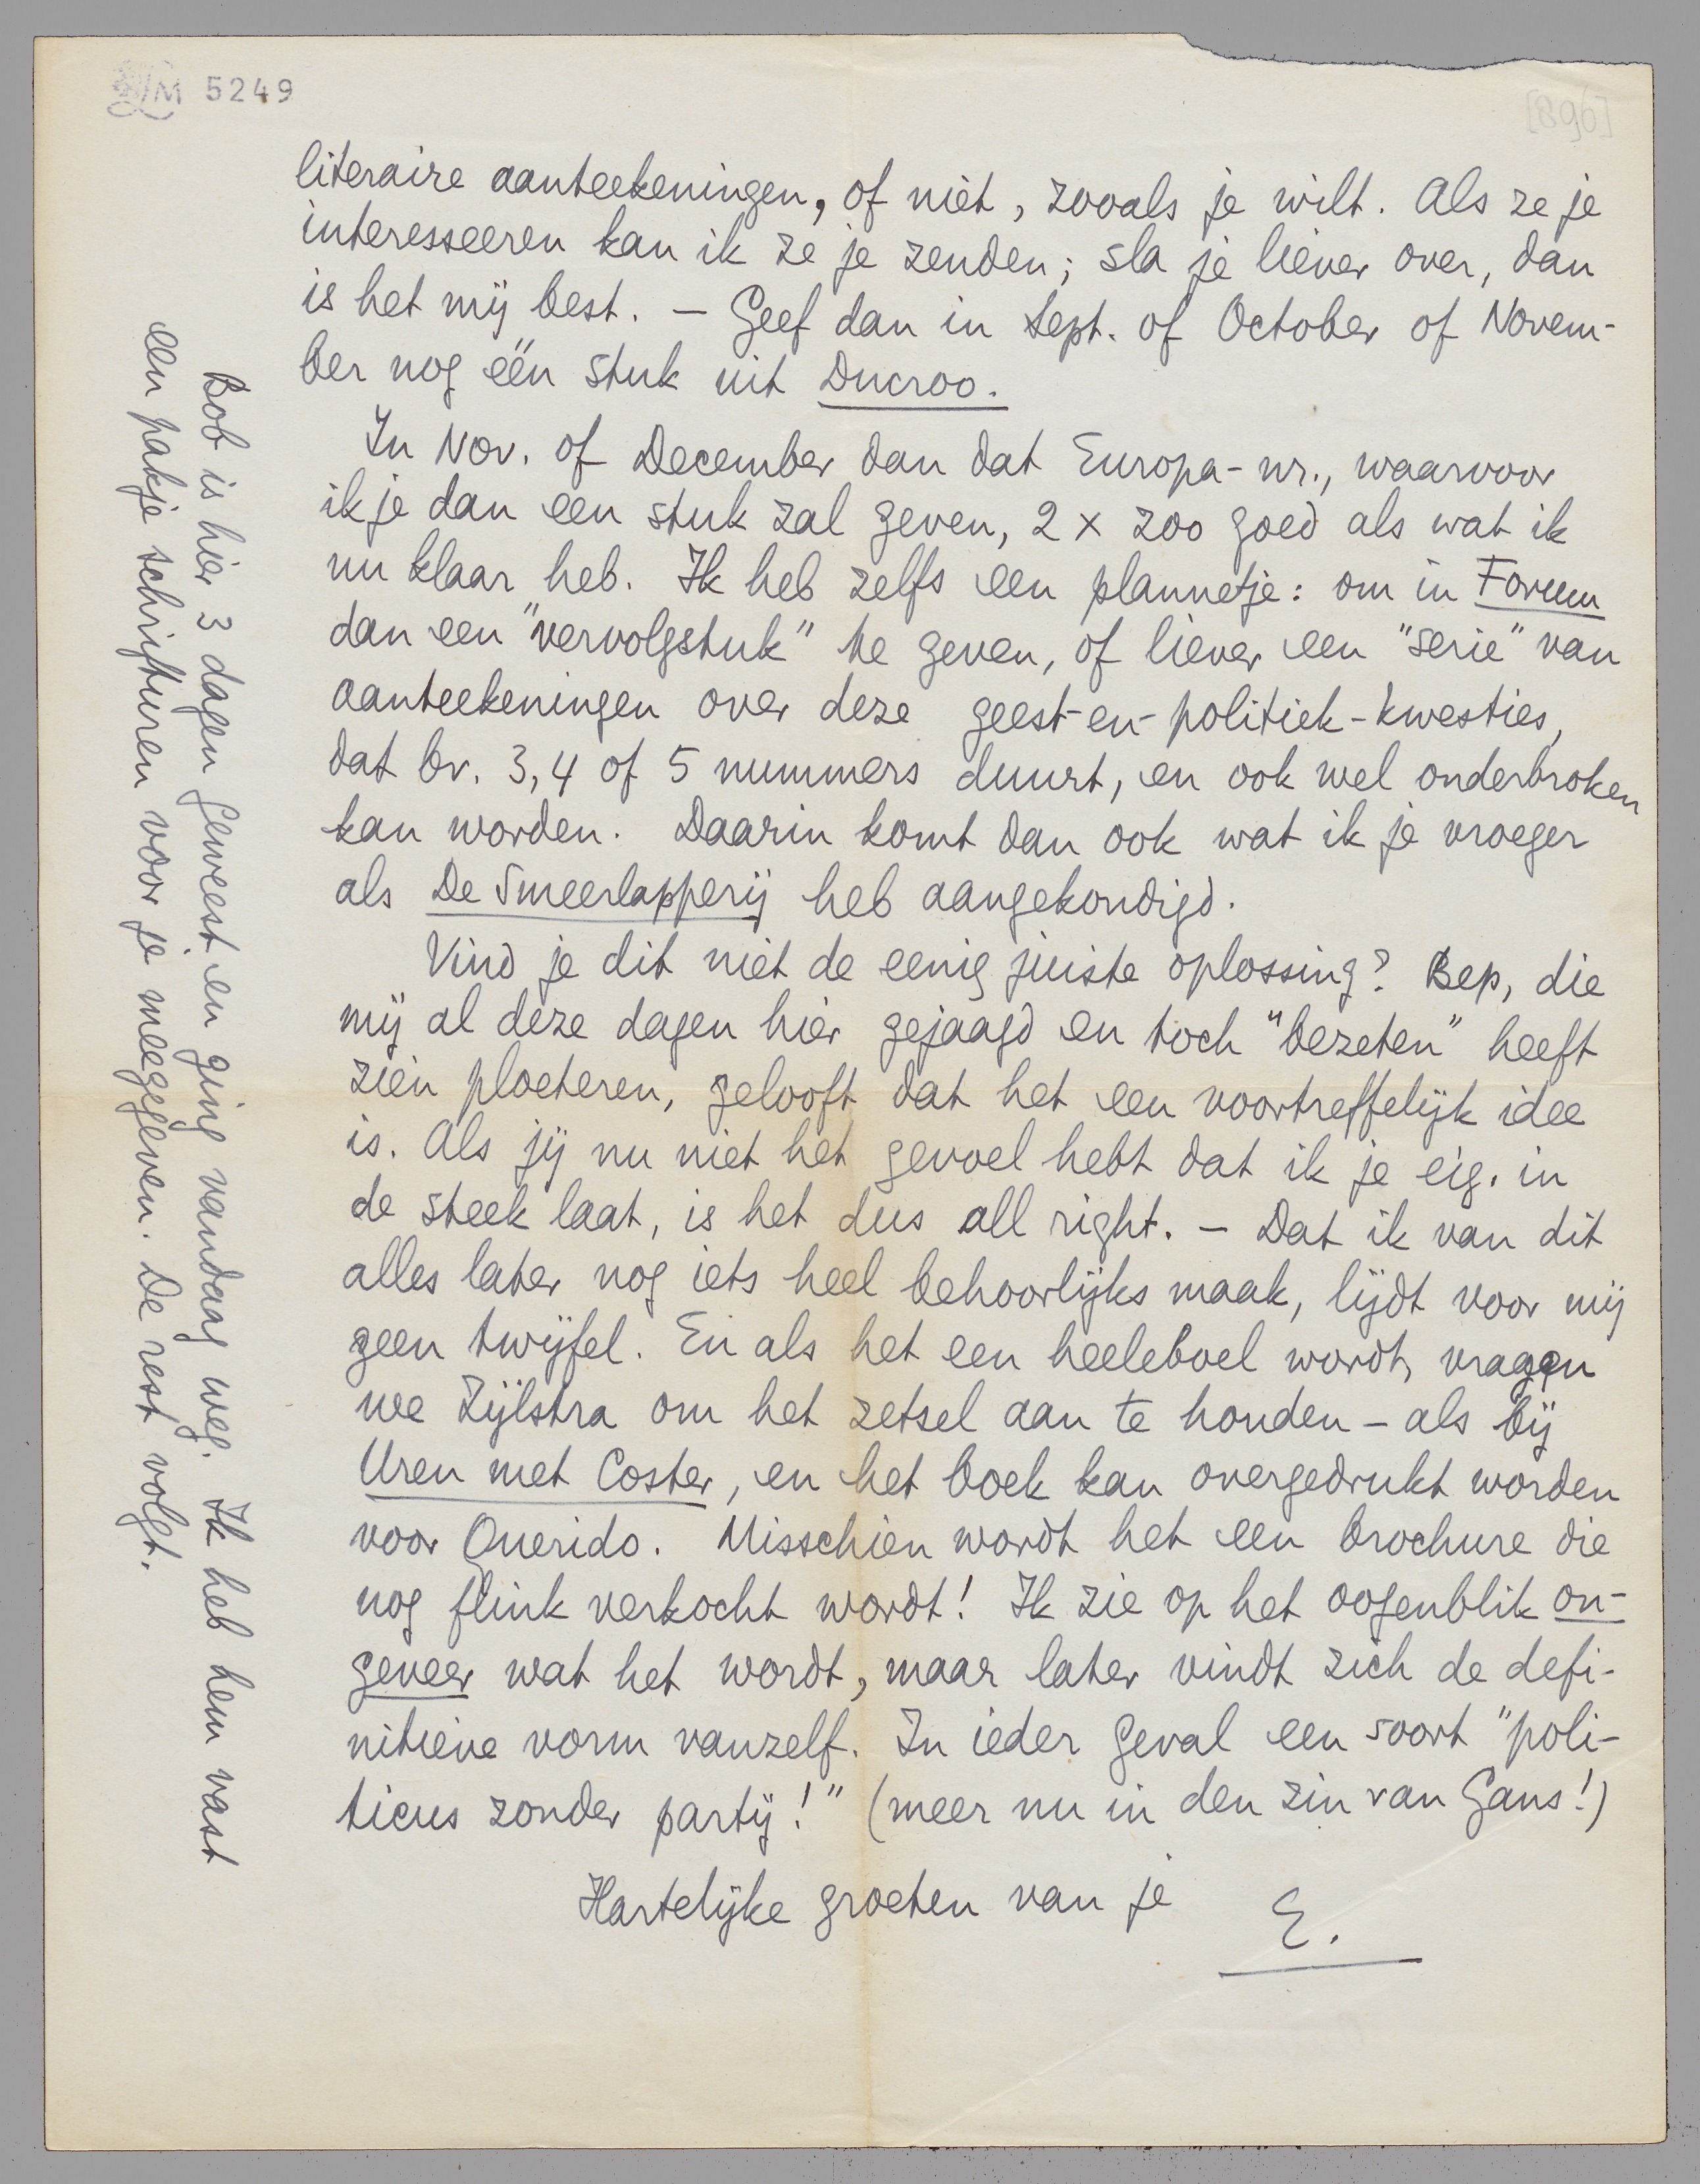 LM 5249
[896]
literaire aanteekeningen, of niet, zooals je wilt. Als ze je
interesseeren kan ik ze je zenden; sla je liever over, dan
is het mij best. — Geef dan in Sept. of October of Novem-
ber nog één stuk uit Ducroo.
In Nov. of December dan dat Europa-nr., waarvoor
ik je dan een stuk zal geven, 2 x zoo goed als wat ik
nu klaar heb. Ik heb zelfs een plannetje: om in Forum
dan een "vervolgstuk" te geven, of liever een "serie" van
aanteekeningen over deze geest-en-politiek-kwesties,
dat bv. 3, 4 of 5 nummers duurt, en ook wel onderbroken
kan worden. Daarin komt dan ook wat ik je vroeger
als De Smeerlapperij heb aangekondigd.
Vind je dit niet de eenig juiste oplossing? Bep, die
mij al deze dagen hier gejaagd en toch "bezeten" heeft
zien ploeteren, gelooft dat het een voortreffelijk idee
is. Als jij nu niet het gevoel hebt dat ik je eig. in
de steek laat, is het dus all right. — Dat ik van dit
alles later nog iets heel behoorlijks maak, lijdt voor mij
geen twijfel. En als het een heeleboel wordt, vragen
we Zijlstra om het zetsel aan te houden — als bij
Uren met Coster, en het boek kan overgedrukt worden
voor Querido. Misschien wordt het een brochure die
nog flink verkocht wordt! Ik zie op het oogenblik on-
geveer wat het wordt, maar later vindt zich de defi-
nitieve vorm vanzelf. In ieder geval een soort "poli-
ticus zonder partij!" (meer nu in den zin van Gans!)
Hartelijke groeten van je
E.
Bob is hier 3 dagen geweest en ging vandaag weg. Ik heb hem vast
een pakje schrifturen voor je meegegeven. De rest volgt.